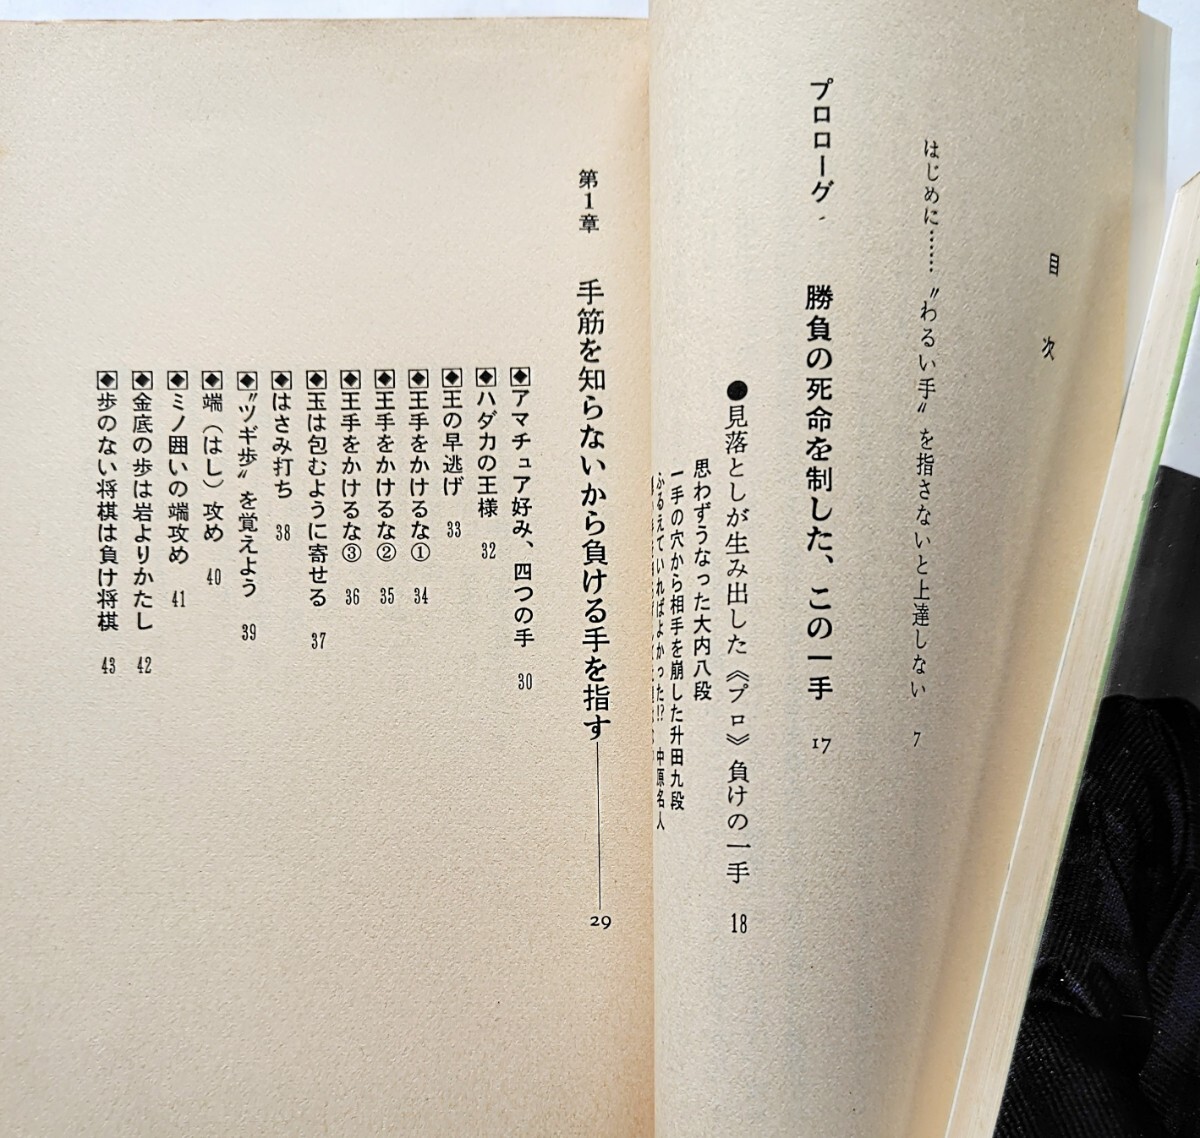 目次
はじめに……〝わるい手〟を指さないと上達しない 7
プロローグ 勝負の死命を制した、この一手 17
●見落としが生み出した《プロ》負けの一手 18
思わずうなった大内八段
一手の穴から相手を崩した升田九段
ふるえていればよかった!? 中原名人
第1章 手筋を知らないから負ける手を指す 29
アマチュア好み、四つの手 30
ハダカの王様 32
王の早逃げ 33
王手をかけるな① 34
王手をかけるな② 35
王手をかけるな③ 36
玉は包むように寄せる 37
はさみ打ち 38
〝ツギ歩〟を覚えよう 39
端(はし)攻め 40
ミノ囲いの端攻め 41
金底の歩は岩よりかたし 42
歩のない将棋は負け将棋 43